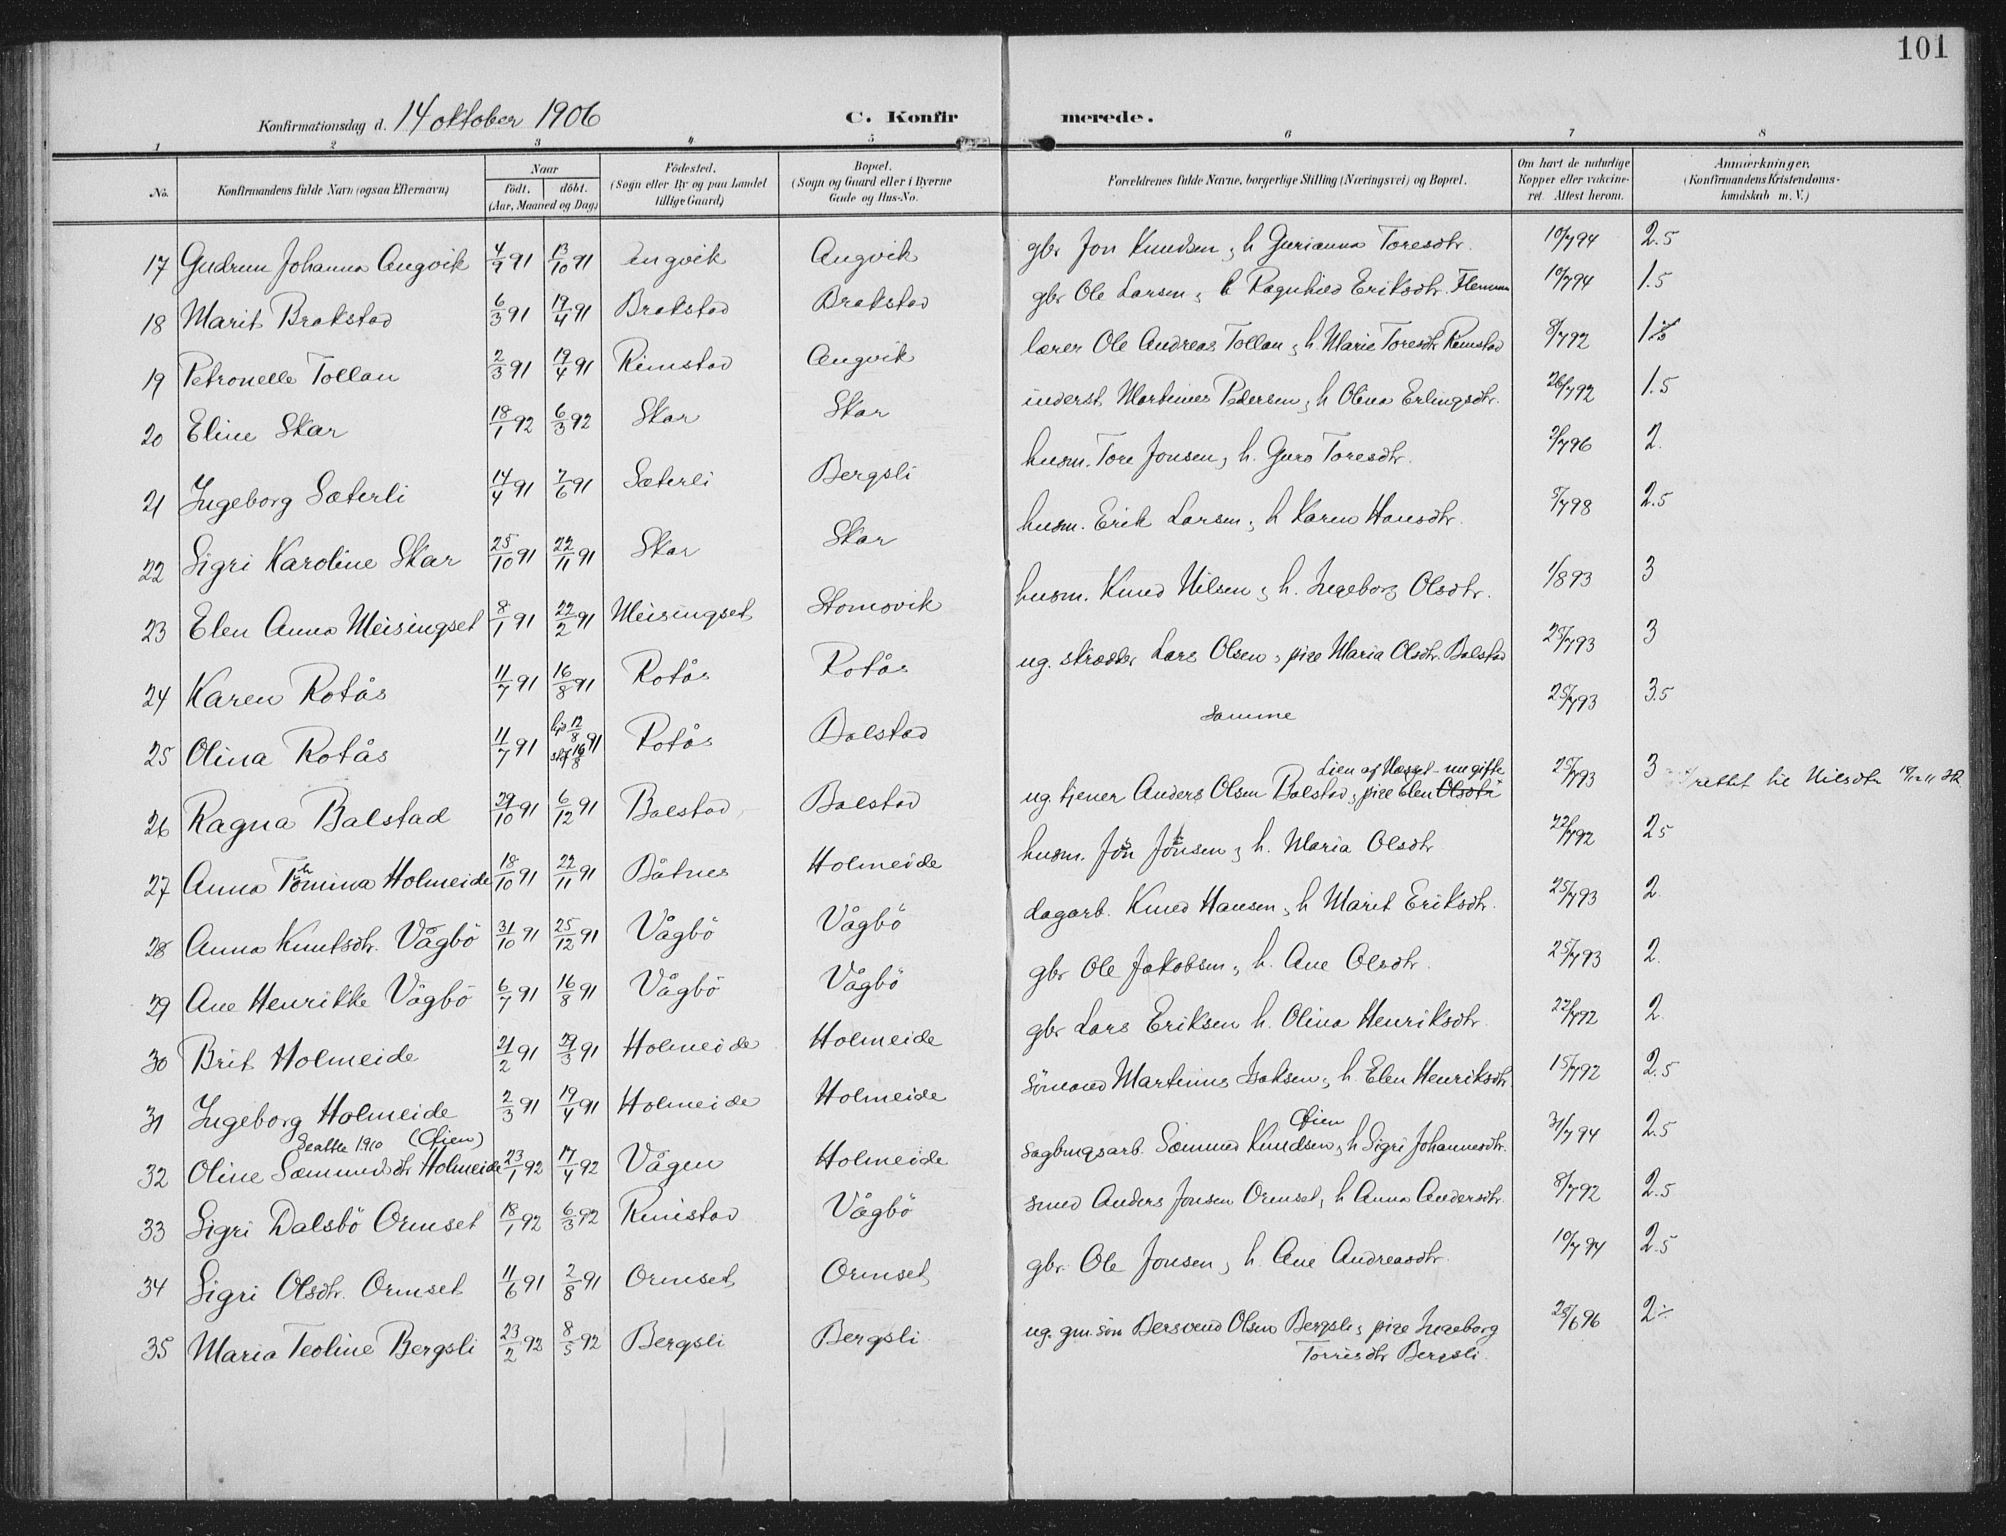 101
Konfirmationsdag d. 14 oktober 1906
C. Konfir merede.
1 2 3 4 5 6 7 8
No. Konfirmandens fulde Navn (ogsaa Efternavn) Naar födt. döbt. (Aar, Maaned og Dag) Födested. (Sogn eller By og paa Landet tillige Gaard) Bopæl. (Sogn og Gaard eller i Byerne Gade og Hus-No. Forældrenes fulde Navne, borgerlige Stilling (Næringsvei) og Bopæl. Om havt de naturlige Kopper eller vakcineret. Attest herom. Anmærkninger. (Konfirmandens Kristendomskundskab m. V.)
17 Gudrun Johanna Angvik 4/9 91 13/10 91 Angvik Angvik gbr Jon Knudsen, h Gurianna Toresdtr. 10/7 94 2.5
18 Marit Brakstad 6/3 91 19/4 91 Brakstad Brakstad gbr Ole Larsen, h Ragnhild Eriksdtr. 10/7 94 1.5
19 Petronelle Tollan 2/3 91 19/4 91 Rimstad Angvik lærer Ole Andreas Tollan, h. Marie Toresdtr Rimstad 8/7 92
20 Eline Skar 18/1 92 6/3 92 Skar Skar inderst Martinus Pedersen, h Olina Erlingsdtr. 26/7 92 1.5
21 Ingeborg Sæterli 14/4 91 7/6 91 Sæterli Bergsli husm. Tore Jonsen, h. Guro Toresdtr. 3/7 96 2.
22 Sigri Karoline Skar 25/10 91 22/11 91 Skar Skar husm. Erik Larsen, h Karen Hansdtr. 5/7 98 2.5
23 Elen Anna Meisingset 8/1 91 22/2 91 Meisingset Stomsvik husm. Knud Nilsen, h. Ingeborg Olsdtr. 1/8 93 3
24 Karen Rotås 11/7 91 16/8 91 Rotås Rotås ug. skrædder Lars Olsen, pige Maria Olsdtr. Balstad 25/7 93 3
25 Olina Rotås 11/7 91 hjd 12/8 stf 16/8 91 Rotås Balstad samme 25/7 93 3.5
26 Ragna Balstad 29/10 91 6/12 91 Balstad Balstad ug. tjener Anders Olsen Balstad, pige Elen Olsdtr 25/7 93 3 rettet til Nilsdtr
27 Anna Tomina Holmeide 18/10 91 22/11 91 Båtnes Holmeide husm. Jon Jonsen, h. Maria Olsdtr 22/7 92 2.5
28 Anna Knutsdtr. Vågbö 31/10 91 25/12 91 Vågbö Vågbö dagarb. Knud Hansen, h Marit Eriksdtr. 25/7 93 2.
29 Ane Henrikke Vågbö 6/7 91 16/8 91 Vågbö Vågbö gbr Ole Jakobsen, h. Ane Olsdtr. 25/7 93 2.
30 Brit Holmeide 21/2 91 29/3 91 Holmeide Holmeide gbr Lars Eriksen h. Olina Henriksdtr. 22/7 92 2
31 Ingeborg Holmeide 2/3 91 19/4 91 Holmeide Holmeide sömand Martinus Isaksen, h. Elen Henriksdtr. 15/7 92 2.5
Seattle 1910 (Öien) Öien
32 Oline Sæmundsdtr Holmeide 23/1 92 17/4 92 Vågen Holmeide sagbrugsarb. Sæmund Knudsen, h Sigri Johannesdtr. 31/7 94 2.5
33 Sigri Dalsbö Ormset 18/1 92 6/3 92 Rimstad Vågbö smed Anders Jonsen Ormset, h Anna Andersdtr. 8/7 92 2.5
34 Sigri Olsdtr. Ormset 11/6 91 2/8 91 Ormset Ormset gbr. Ole Jonsen, h. Ane Andreasdtr. 10/7 94 2.5
35 Maria Teoline Bergsli 23/2 92 8/5 92 Bergsli Bergsli ug. gm.sön Bersvend Olsen Bergsli, pige Ingeborg 28/6 96 2÷
Torresdtr Bergsli.